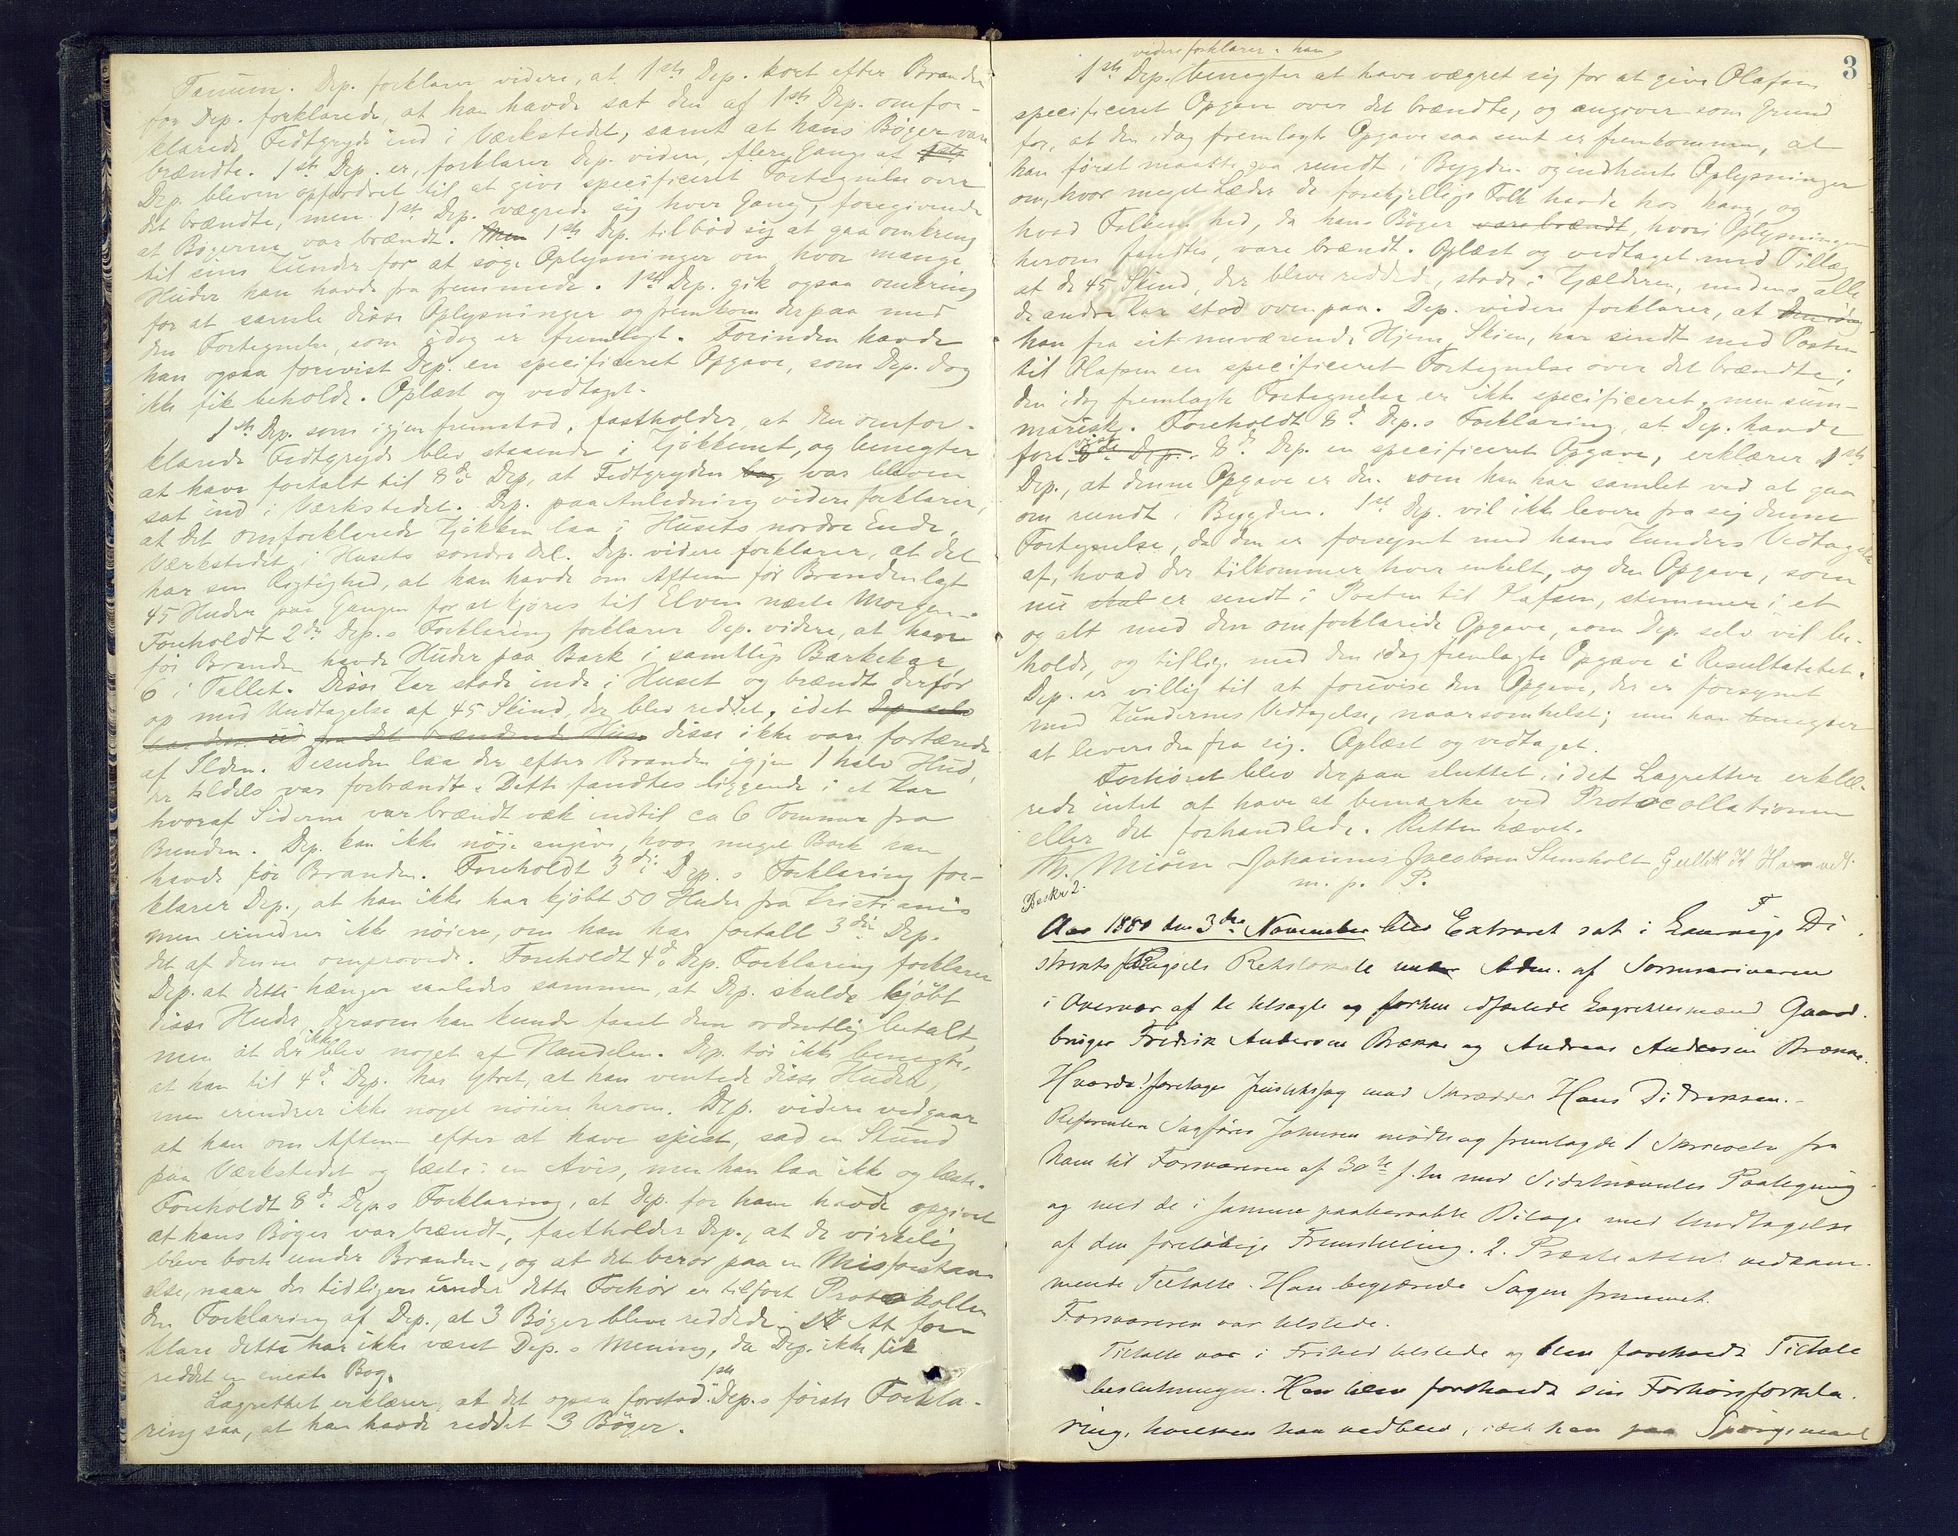 Tanum. Dep. forklarer videre, at 1ste Dep. kort efter Branden
for Dep. forklarede, at han havde sat den af 1ste Dep. omfor-
klarede Fedtgryde ind i Værkstedet, samt at hans Bøger vare
brændte. 1ste Dep. er, forklarer Dep. videre, flere Gange af 1ste
Dep. bleven opfordret til at give specificeret Fortegnelse over
det brændte, men 1ste Dep. vægrede sig hver Gang, foregivende
at Bøgerne var brændt. Men 1ste Dep. tilbød sig at gaa omkring
til sine Kunder for at søge Oplysninger om, hvor mange
Huder han havde fra fremmede. 1ste Dep. gik ogsaa omkring
for at samle disse Oplysninger og fremkom derpaa med
den Fortegnelse, som idag er fremlagt. Forinden havde
han ogsaa forevist Dep. en specificeret Opgave, som Dep. dog
ikke fik beholde. Oplæst og vedtaget.
1ste Dep. som igjen fremstod, fastholder, at den omfor-
klarede Fedtgryde blev staaende i Kjøkkenet, og benegter
at have fortalt til 8de Dep, at Fedtgryden var bleven
sat ind i Værkstedet. Dep. paa Anledning videre forklarer,
at det omforklarede Kjøkken laa i Husets nordre Ende,
Værkstedet i Husets søndre Del. Dep. videre forklarer, at det
har sin Rigtighed, at han havde om Aftenen før Branden lagt
45 Huder paa Gangen for at kjøres til Elven næste Morgen.
Foreholdt 2den Dep.s Forklaring forklarer Dep. videre, at han
før Branden havde Huder paa Bark i samtlige Barkekar,
6 i Tallet. Disse Kar stode inde i Huset og brændte derfor
op med Undtagelse af 45 Skind, der blev reddet, idet Dep selv
bar dem ud fra det brændende Hus disse ikke vare fortærede
af Ilden. Desuden laa der efter Branden igjen 1 halv Hud,
der tildels var forbrændt. Dette fandtes liggende i et Kar
hvoraf Siderne var brændt væk indtil ca 6 Tommer fra
Bunden. Dep. kan ikke nøie angive, hvor meget Bark han
havde før Branden. Foreholdt 3die Dep.s Forklaring for-
klarer Dep., at han ikke har kjøbt 50 Huder fra Kristiania
men erindrer ikke nøiere, om han har fortalt 3die Dep.
det af denne omprovede. Foreholdt 4de Dep. Forklaring forklarer
Dep. at dette hænger saaledes sammen, at Dep. skulde kjøbt
disse Huder, dersom han kunde faaet dem ordentlig betalt,
men at der ikke blev noget af Handelen. Dep. tør ikke benegte,
at han til 4de Dep. har ytret, at han ventede disse Huder,
men erindrer ikke noget nøiere herom. Dep. videre vedgaar
at han om Aftenen efter at have spist, sad en Stund
paa Værkstedet og læste i en Avis, men han laa ikke og læste.
Foreholdt 8de Deps Forklaring, at Dep. for ham havde opgivet
at hans Bøger var brændt, fastholder Dep., at de virkelig
bleve borte under Branden, og at det beror paa en Misforstaa-
else, naar der tidligere under dette Forhør er tilført Protokollen
den Forklaring af Dep., at 3 Bøger bleve reddede. At for-
klare dette har ikke været Dep.s Mening, da Dep. ikke fik
reddet en eneste Bog.
Lagrettet erklærer, at det ogsaa forstod 1ste Dep.s første Forkla-
ring saa, at han havde reddet 3 Bøger.
3
videre forklarer: han
1ste Dep. benegter at have vægret sig for at give Olafsen
specificeret Opgave over det brændte, og angiver som Grund
for, at den idag fremlagte Opgave saa sent er fremkommen, at
han først maatte gaa rundt i Bygden og indhente Oplysninger
om, hvor meget Læder de forskjellige Folk havde hos ham, og
hvad Folkene hed, da hans Bøger vare brændt, hvori Oplysninger
herom fandtes, vare brændt. Oplæst og vedtaget med Tillæg
at de 45 Skind, der bleve reddede, stode i Kjælderen, medens alle
de andre Kar stod ovenpaa. Dep. videre forklarer, at
han fra sit nuværende Hjem, Skien, har sendt med Posten
til Olafsen en specificeret Fortegnelse over det brændte;
den idag fremlagte Fortegnelse er ikke specificeret, men sum-
marisk. Foreholdt 8de Dep.s Forklaring, at Dep. havde
forevist 8de Dep. en specificeret Opgave, erklærer 1ste
Dep., at denne Opgave er den som han har samlet ved at gaa
om rundt i Bygden. 1ste Dep. vil ikke levere fra sig denne
Fortegnelse, da den er forsynet med hans Kunders Vedtagelse
af, hvad der tilkommer hver enkelt, og den Opgave, som
nu skal er sendt i Posten til Olafsen, stemmer i et
og alt med den omforklarede Opgave, som Dep. selv vil be-
holde, og tillige med den idag fremlagte Opgave i Resultatet.
Dep. er villig til at forevise den Opgave, der er forsynet
med Kundernes Vedtagelse, naarsomhelst; men han benegter
at levere den fra sig. Oplæst og vedtaget.
Forhøret blev derpaa sluttet, idet Lagretter erklæ-
rede intet at have at bemærke ved Protocollationen
eller det forhandlede. Retten hævet.
Th. Miøen Johannes Jacobsen Stensholt Gullik H
m. p. P.
Beskr 2.
Aar 1880 den 3die November blev Extraret sat i Laurvigs Di
strikts Fængsels Retslokale under Adm. af Sorenskriveren
i Overvær af de tilsagte og forhen edfæstede Lagrettesmænd Gaard
bruger Fredrik Andersen Brekke og Andreas Andersen Brekke.
Hvorda! foretoges Justitssag mod Skrædder Hans Didriksen.
Referenten Sagfører Johnsen mødte og fremlagde 1 Skrivelse fra
ham til Forsvareren af 30te f. M med Sidstnævntes Paategning
og med de i samme paaberaabte Bilage med Undtagelse
af den foreløbige Fremstilling. 2. Præsteattest vedkom-
mende Tiltalte. Han begjærede Sagen fremmet.
Forsvareren var tilstede.
Tiltalte var i Frihed tilstede og blev foreholdt Tiltale
beslutningen. Han blev foreholdt sin Forhørsforkla.
ring, hvilken han vedblev, idet han paa Spørgsmaal